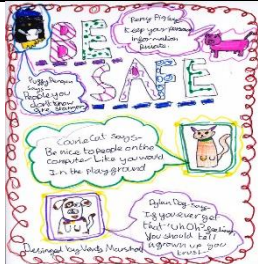 Penny Piglet
Keep your personal
information
private.
BE
SAFE
Puffy Penguin
Says...
People you
don't know
are strangers
Courie Cat says-
Be nice to people on the
computer Like you would
In the playground
Dylan Dog Says-
If you ever get
that "uh oh" feeling
You should tell
a grown up you
trust-
Designed by Verity Marshall